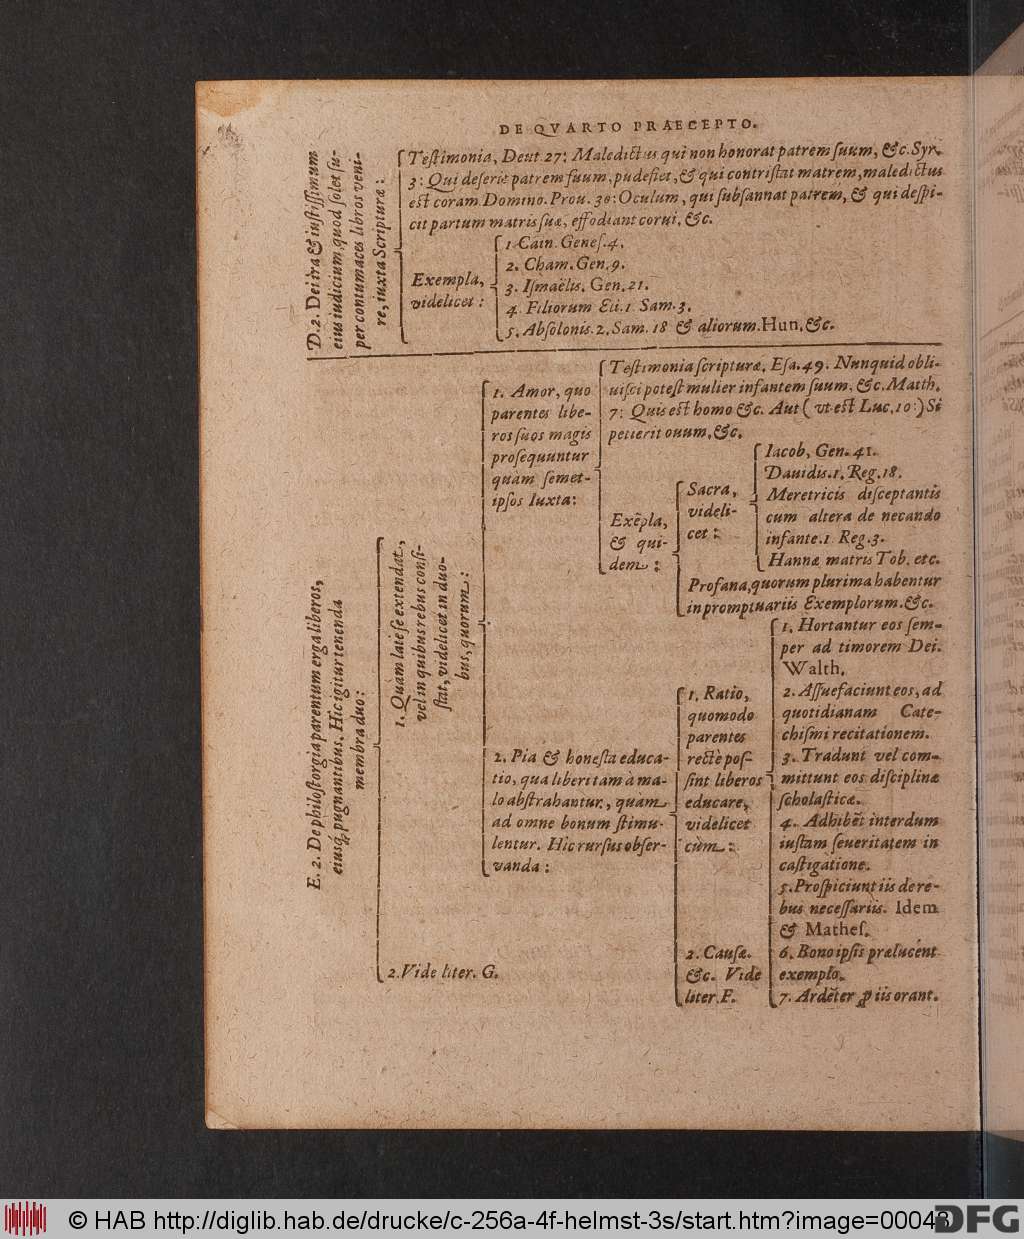 DE QVARTO PRAECEPTO.
D. 2. Dei ira & iustissimum
eius iudicium, quod solet su-
per contumaces libros veni-
re, iuxta Scripturæ:
Testimonia, Deut 27: Maledictus qui non honorat patrem suum, &c. Syr.
3: Qui deserit patrem suum, pudefiet, & qui contristat matrem, maledictus
est coram Domino. Prou. 30: Oculum, qui subsannat patrem, & qui despi-
cit partum matris suæ, effodiant corui, &c.
Exempla,
videlicet:
1. Cain. Genes. 4.
2. Cham. Gen. 9.
3. Ismaëlis. Gen. 21.
4. Filiorum Eli. 1 Sam. 3.
5. Absolonis. 2. Sam. 18 & aliorum. Hun. &c.
E. 2. De philostorgia parentum erga liberos,
eiusq́; pugnantibus. Hic igitur tenenda
membra duo:
1. Quàm latè se extendat,
vel in quibus rebus consi-
stat, videlicet in duo-
bus, quorum:
1. Amor, quo
parentes libe-
ros suos magis
prosequuntur
quàm semet-
ipsos Iuxta:
Testimonia scripturæ, Esa. 49. Nunquid obli-
uisci potest mulier infantem suum, &c. Matth.
7: Quis est homo &c. Aut ( vt est Luc. 10:) Si
petierit ouum, &c.
Exẽpla,
& qui-
dem:
Sacra,
videli-
cet:
Iacob, Gen. 41.
Dauidis. 1. Reg. 18.
Meretricis disceptantis
cum altera de necando
infante. 1 Reg. 3.
Hannæ matris Tob. etc.
Profana, quorum plurima habentur
in promptuariis Exemplorum. &c.
2. Pia & honesta educa-
tio, qua liberi tam à ma-
lo abstrahantur, quam
ad omne bonum stimu-
lentur. Hic rursus obser-
vanda:
1. Ratio,
quomodo
parentes
rectè pos-
sint liberos
educare,
videlicet
cùm:
1. Hortantur eos sem-
per ad timorem Dei.
Walth.
2. Assuefaciunt eos, ad
quotidianam Cate-
chismi recitationem.
3. Tradunt vel com-
mittunt eos disciplinæ
scholasticæ.
4. Adhibẽt interdum
iustam seueritatem in
castigatione.
5. Prospiciunt iis de re-
bus necessariis. Idem
& Mathes.
6. Bono ipsis prælucent
exemplo.
7. Ardẽter ꝓ iis orant.
2. Causæ.
&c. Vide
liter. F.
2. Vide liter. G.
© HAB http://diglib.hab.de/drucke/c-256a-4f-helmst-3s/start.htm?image=00048
DFG